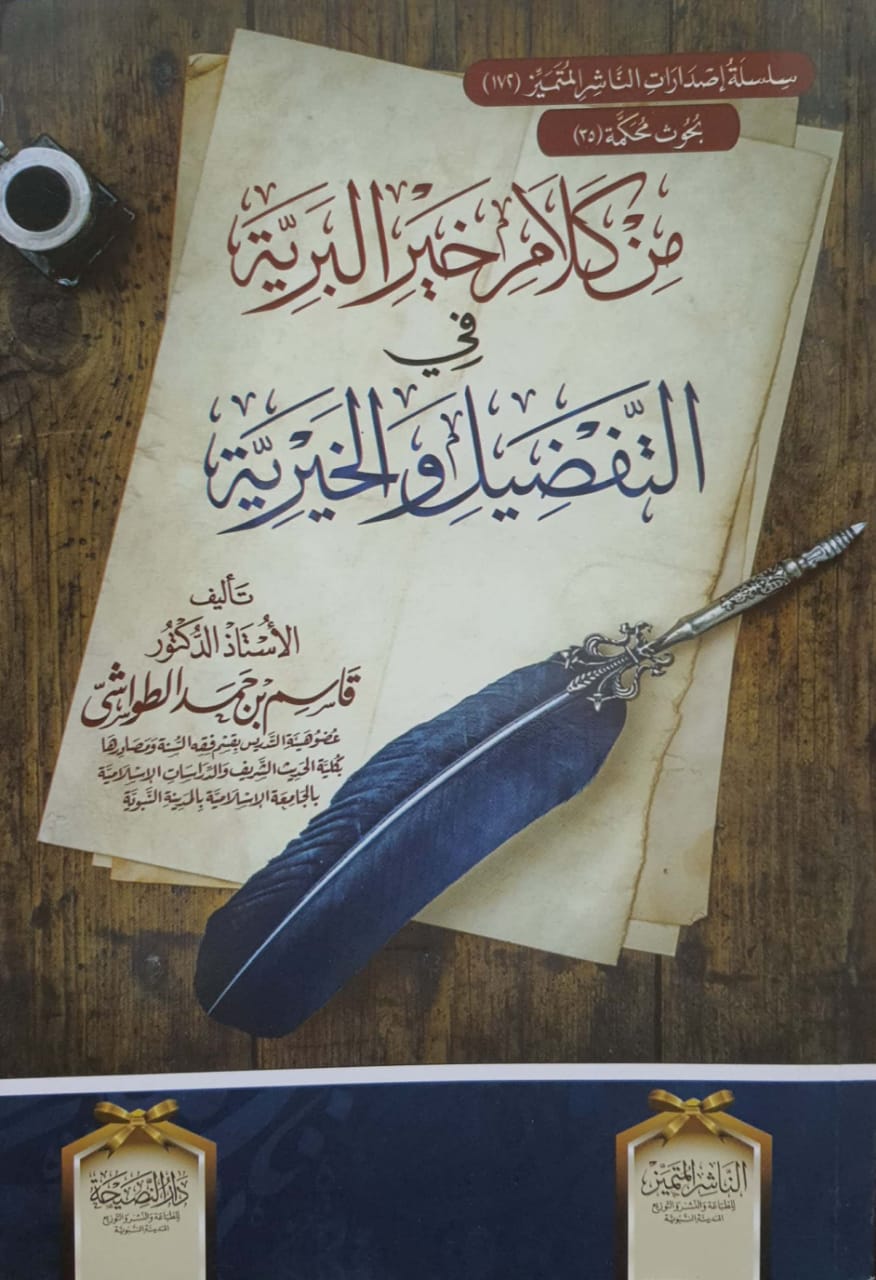 سِلسلَةُ إصْدَارَاتِ النَّاشِرِ المُتَمَيِّزِ (١٧٢)
بُحُوث مُحَكَّمَة (٣٥)
مِنْ كَلَامِ خَيْرِ البَرِيَّةِ
فِي
التَّفْضِيلِ وَالخَيْرِيَّةِ
تَأليف
الأُسْتَاذ الدُّكتُور
قَاسِم بْن حَمَد الطواشي
عُضو هَيئة التَّدريس بقِسْم فقه السُّنة ومَصَادِرها
بكُلية الحَديث الشَّريف والدِّرَاسَات الإسْلَامِيَّة
بالجَامِعَة الإسْلَامِيَّة بالمَدِينَة النَّبَوِيَّة
النَّاشِر المُتَمَيِّز
للطبَاعَة وَالنَّشْر وَالتَّوزيع
المَدينَة النَّبَويَّة
دَارُ النَّصِيحَة
للطبَاعَة وَالنَّشْر وَالتَّوزيع
المَدينَة النَّبَويَّة